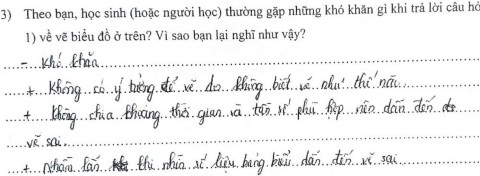 3) Theo bạn, học sinh (hoặc người học) thường gặp những khó khăn gì khi trả lời câu hỏ
1) về vẽ biểu đồ ở trên? Vì sao bạn lại nghĩ như vậy?
- Khó khăn
+ Không có ý tưởng để vẽ do không biết vẽ như thế nào
+ Không chia khoảng thời gian và tần số phù hợp nên dẫn đến
vẽ sai.
+ Nhầm lẫn khi nhìn số liệu bảng biểu dẫn đến vẽ sai